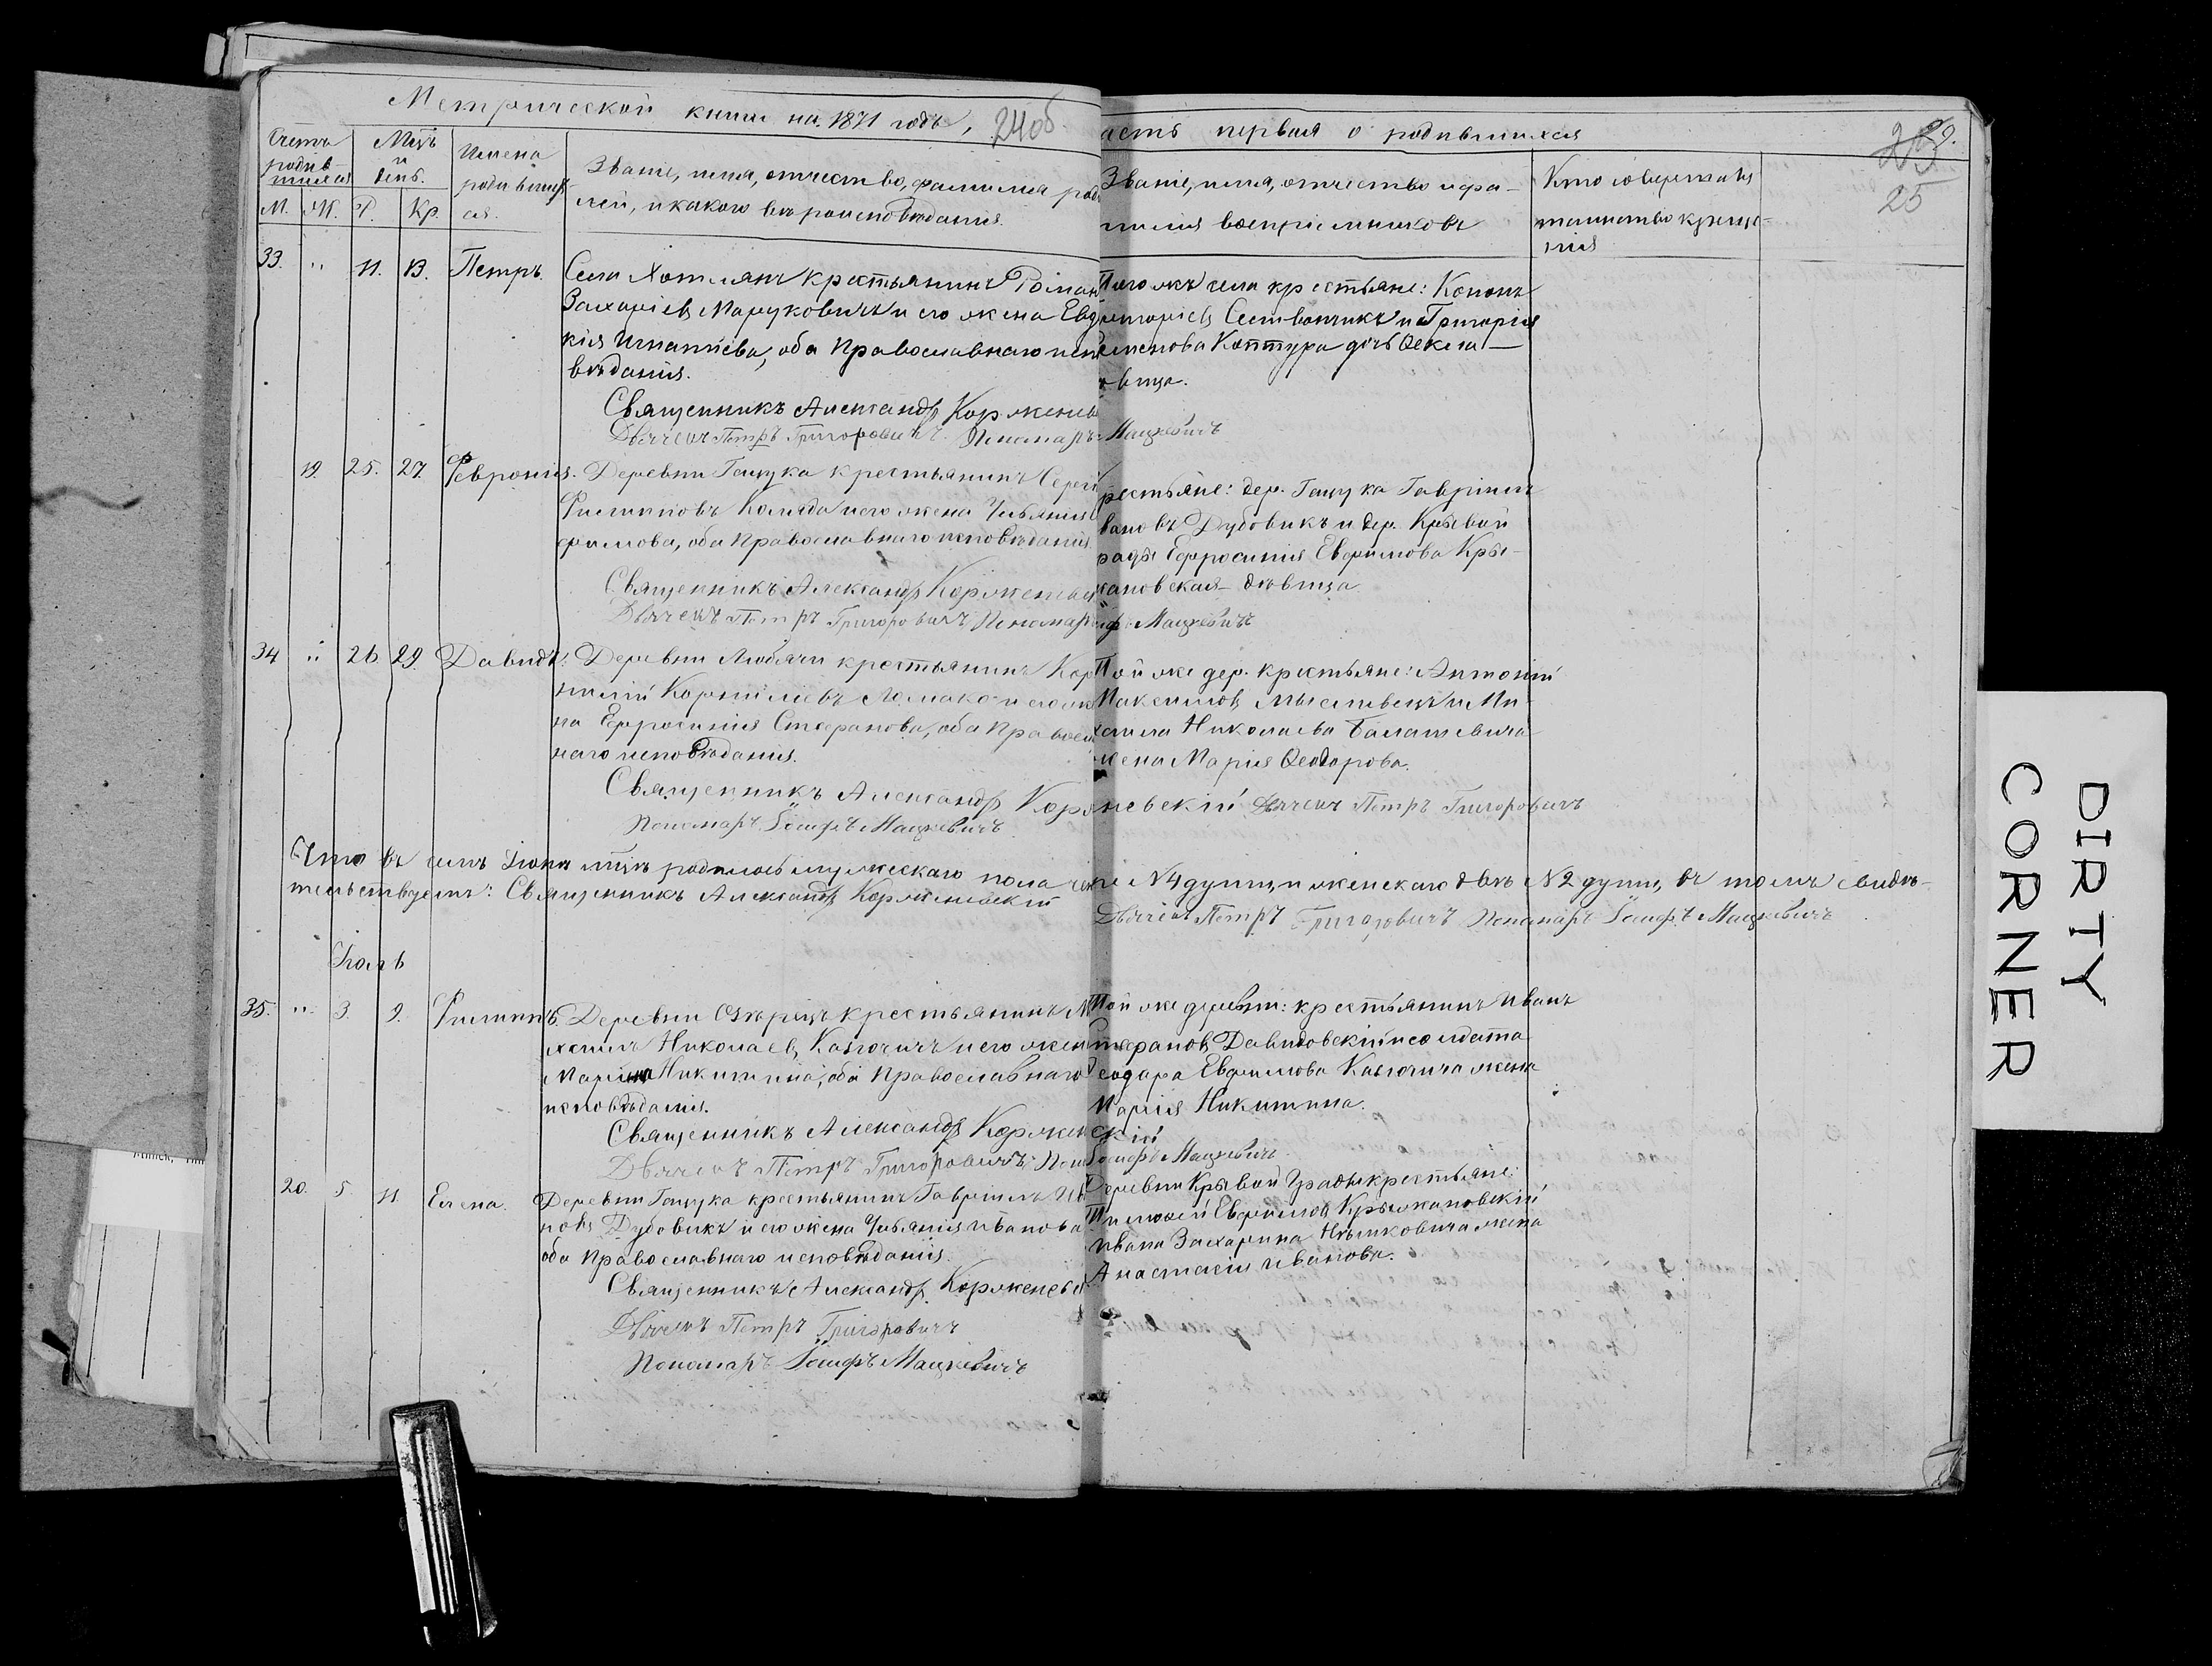 Метрической книги на 1871 годъ,
24об
асть первая о родившихся
29.
25
Счетъ родив-шихся
Мцъ и день.
Имена родивших-ся.
Званіе, имя, отчество, фамилія род
лей, и какого вѣроисповѣданія.
Званіе, имя, отчество и фа-
милія воспріемниковъ
Кто совершалъ
таинство креще-
нія
М. Ж. Р. Кр.
33. " 11. 13. Петръ.
Села Хотлянъ крестьянинъ Романъ
Захаріевъ Маруковичъ и его жена Евд
кія Игнатіева, оба Православнаго испо
вѣданія.
Священникъ Александръ Корженев
Дьячекъ Петръ Григоровичъ. Пономарь
Того жъ села крестьяне: Кононъ
ригоріевъ и Григорія
еменова дочь Ѳекла —
вица.
Мацкевичъ
19. 25. 27. Февронія.
Деревни Гацука крестьянинъ Сергі
Филиповъ Коляда и его жена Ульянія
фимова, оба Православнаго исповѣданія.
Священникъ Александръ Корженевс
Дьячекъ Петръ Григоровичъ Пономарь
рестьяне: дер. Гацука Гавріилъ
вановъ Дубовикъ и дер. Кривой
рады Ефросинія Евфимова Кры-
ановская — дѣвица
иф Мацкевичъ
34 " 26 29. Давидъ.
Деревни Любячи крестьянинъ Кор
нилій Корниліевъ Ломако и его же
на Ефросинія Стефанова, оба Правосл
наго исповѣданія.
Священникъ Александръ Корженевскій Дьячекъ Петръ Григоровичъ
Пономарь Іосифъ Мацкевичъ
Той же дер. крестьяне: Антоній
Максимовъ и Ми-
хаила Николаева Балашевича
жена Марія Ѳеодорова.
Что въ семъ Іюнѣ мцѣ родилось мужескаго пола четыре №4 душъ, и женскаго двѣ №2 душъ, въ томъ свидѣ-
тельствуемъ: Священникъ Александръ Корженевскій
Дьячекъ Петръ Григоровичъ Пономарь Іосифъ Мацкевичъ
Іюль
35. " 3. 9. Филиппъ.
Деревни Озерицъ крестьянинъ М
хаилъ Николаевъ и его жен
Марина Никитина, оба Православнаго
исповѣданія.
Священникъ Александръ Коржен
Дьячекъ Петръ Григоровичъ Поно
Той же деревни: крестьянинъ Иванъ
тефановъ Давидовскій и солдата
еодора Евфимова жена
Марія Никитина.
скій
Іосифъ Мацкевичъ
20. 5. 11. Елена.
Деревни Гацука крестьянинъ Гавріилъ Ив
новъ Дубовикъ и его жена Ульянія Иванова
оба Православнаго исповѣданія.
Священникъ Александръ Корженевск
Дьячекъ Петръ Григоровичъ
Пономарь Іосифъ Мацкевичъ
Деревни Кривой Грады крестьяне:
Тимофей Евфимовъ Крыжановскій
Ивана Захарина жена
Анастасія Иванова.
DIRTY
CORNER